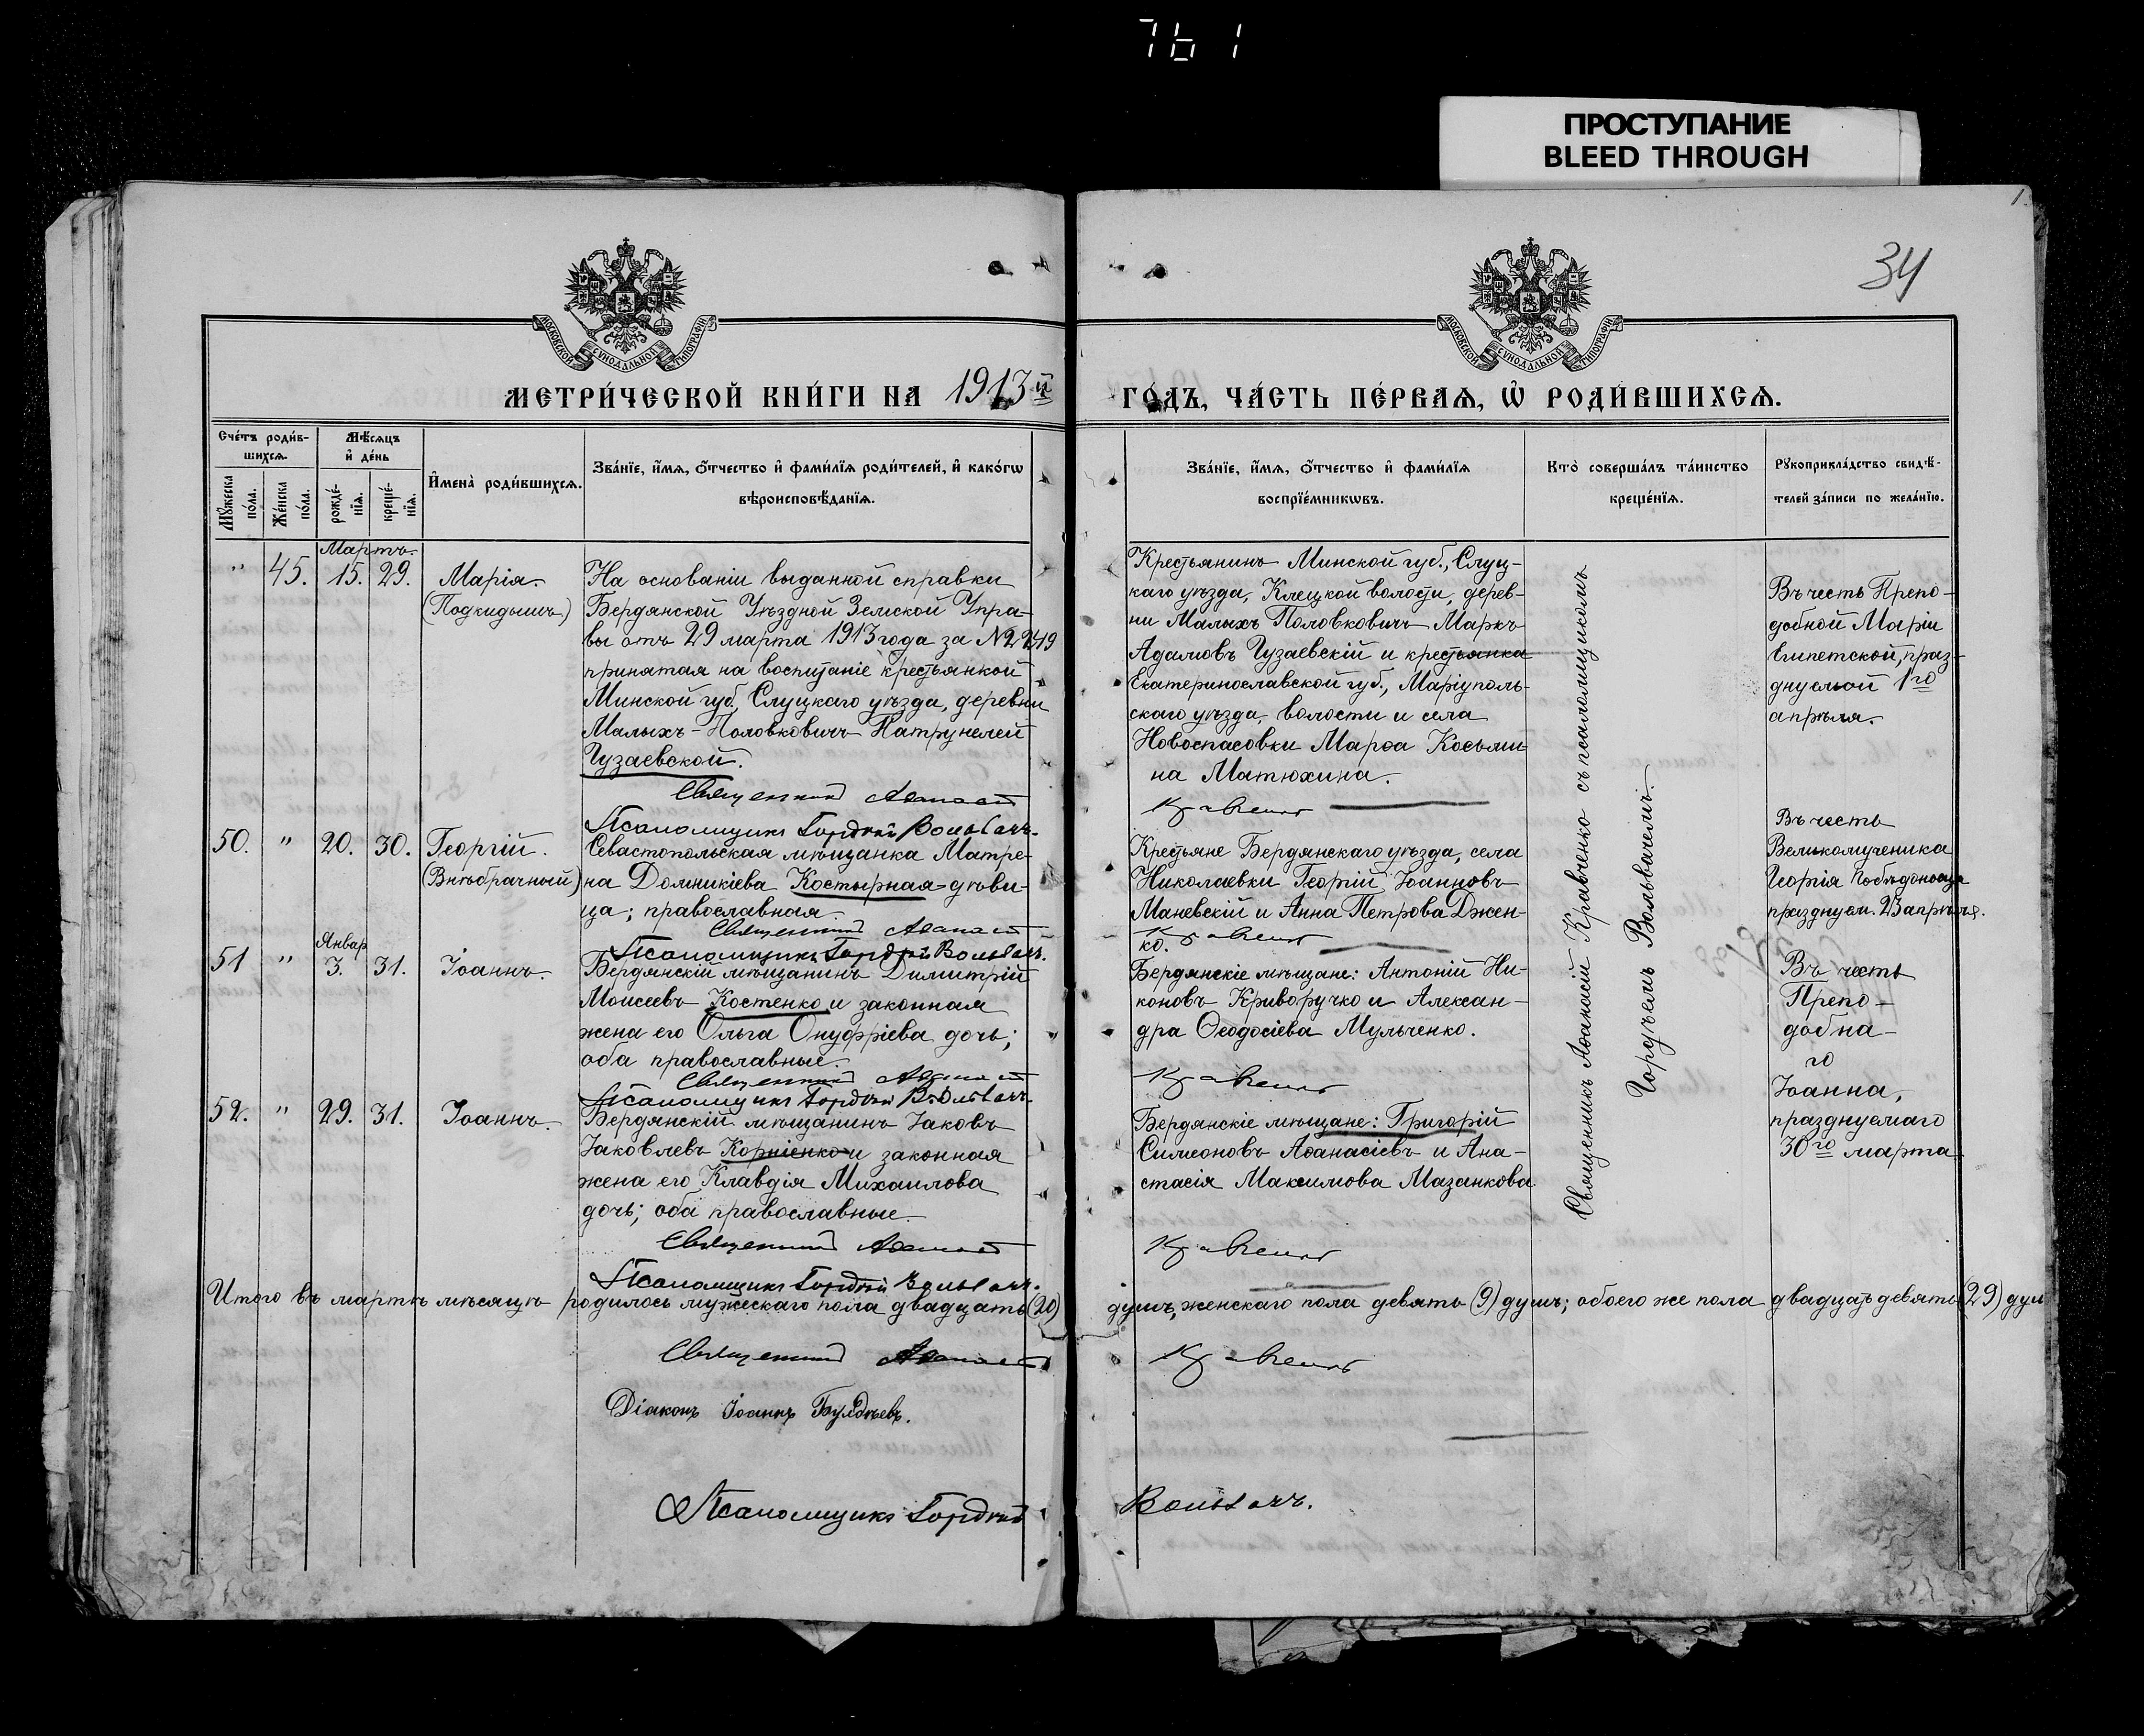 761
ПРОСТУПАНИЕ
BLEED THROUGH
34
МОСКОВСКОЙ СѴНОДАЛЬНОЙ ТИПОГРАФІИ
МОСКОВСКОЙ СѴНОДАЛЬНОЙ ТИПОГРАФІИ
МЕТРИ́ЧЕСКОЙ КНИ́ГИ НА 1913й
ГО́ДЪ, ЧА́СТЬ ПЕ́РВАѦ, Ѡ҆ РОДИ́ВШИХСѦ.
Сче́тъ роди́в-
шихсѧ.
Мꙋ́жеска по́ла.
Же́нска по́ла.
Мѣ́сѧцъ
и҆ де́нь
рожде́-
нїѧ.
креще́-
нїѧ.
И҆мена̀ роди́вшихсѧ.
Зва́нїе, и҆́мѧ, ѻ҆́тчество и҆ фами́лїѧ роди́телей, и҆ како́гѡ
вѣроисповѣ́данїѧ.
Зва́нїе, и҆́мѧ, ѻ҆́тчество и҆ фами́лїѧ
воспрїе́мникѡвъ.
Кто̀ соверша́лъ та́инство
креще́нїѧ.
Рꙋкоприкла́дство свидѣ́-
телей за́писи по жела́нїю.
Мартъ.
" 45. 15. 29. Марія.
(Подкидышъ)
На основаніи выданной справки
Бердянской Уѣздной Земской Упра-
вы отъ 29 марта 1913 года за №2249
принятая на воспитаніе крестьянкой
Минской губ., Слуцкаго уѣзда, деревни
Малыхъ-Половковичъ Патрунелей
Чузаевской.
Священникъ Аѳанасій
Псаломщикъ Гордѣй Вольвачъ.
Крестьянинъ Минской губ., Слуц-
каго уѣзда, Клецкой волости, дерев-
ни Малыхъ Половковичъ Маркъ
Адамовъ Чузаевскій и крестьянка
Екатеринославской губ., Маріуполь-
скаго уѣзда, волости и села
Новоспасовки Марѳа Косьми-
на Матюхина.
Кравченко
Въ честь Препо-
добной Маріи
Египетской, праз-
днуемой 1го
апрѣля.
50. " 20. 30. Георгій.
(Внѣбрачный)
Севастопольская мѣщанка Матре-
на Домникіева Костырная дѣви-
ца; православная.
Священникъ Аѳанасій
Псаломщикъ Гордѣй Вольвачъ.
Крестьяне Бердянскаго уѣзда, села
Николаевки Георгій Іоанновъ
Маневскій и Анна Петрова Джен-
ко.
Кравченко
Въ честь
Великомученика
Георгія Побѣдоносца
празднуем. 23 апрѣля.
Январ
51 " 3. 31. Іоаннъ.
Бердянскій мѣщанинъ Димитрій
Моисеевъ Костенко и законная
жена его Ольга Онуфріева дочь;
оба православные.
Священникъ Аѳанасій
Псаломщикъ Гордѣй Вольвачъ.
Бердянскіе мѣщане: Антоній Ни-
коновъ Криворучко и Алексан-
дра Ѳеодосіева Мульченко.
Кравченко
Въ честь
Препо-
добна-
го
Іоанна,
празднуемаго
30го марта
52. " 29. 31. Іоаннъ.
Бердянскій мѣщанинъ Іаковъ
Іаковлевъ Корніенко и законная
жена его Клавдія Михаилова
дочь; оба православные.
Священникъ Аѳанасій
Псаломщикъ Гордѣй Вольвачъ.
Бердянскіе мѣщане: Григорій
Симеоновъ Аѳанасіевъ и Ана-
стасія Максимова Мазанкова.
Кравченко
Священникъ Аѳанасій Кравченко съ псаломщикомъ
Гордѣемъ Вольвачемъ.
Итого въ мартѣ мѣсяцѣ родилось мужескаго пола двадцать (20) душъ, женскаго пола девять (9) душъ; обоего же пола двадцать девять (29) душ
Священникъ Аѳанасій Кравченко
Діаконъ Іоаннъ
Псаломщикъ Гордѣй Вольвачъ.